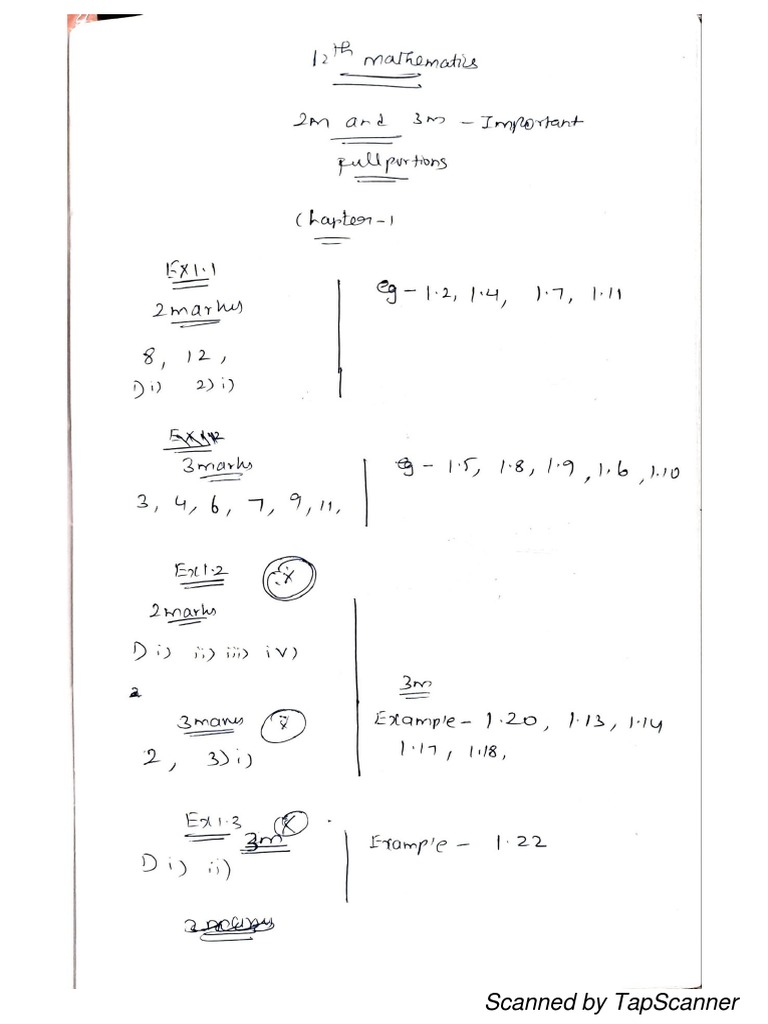 12th mathematics
2m and 3m - Important
full portions
Chapter - 1
Ex 1.1
2 marks
8, 12,
1) i) 2) i)
eg - 1.2, 1.4, 1.7, 1.11
3 marks
3, 4, 6, 7, 9, 11,
eg - 1.5, 1.8, 1.9, 1.6, 1.10
Ex 1.2
2 marks
1) i) ii) iii) iv)
3 marks
2, 3) i)
3m
Example - 1.20, 1.13, 1.14
1.17, 1.18,
Ex 1.3
3m
1) i) ii)
Example - 1.22
Scanned by TapScanner